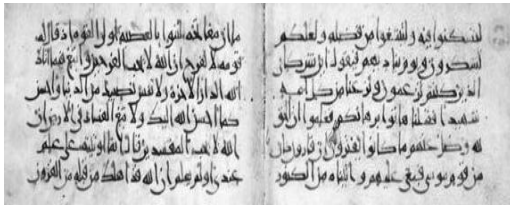 لتسكنوا فيه ولتبتغوا من فضله ولعلكم
تشكرون ويوم يناديهم فيقول اين شركاي
الذين كنتم تزعمون ونزعنا من كل امة
شهيدا فقلنا هاتوا برهانكم فعلموا ان الحق
لله وضل عنهم ما كانوا يفترون ان قارون كان
من قوم موسى فبغى عليهم واتيناه من الكنوز
ما ان مفاتحه لتنوا بالعصبة اولي القوة اذ قال له
قومه لا تفرح ان الله لا يحب الفرحين وابتغ فيما اتاك
الله الدار الاخرة ولا تنس نصيبك من الدنيا واحسن
كما احسن الله اليك ولا تبغ الفساد في الارض ان
الله لا يحب المفسدين قال انما اوتيته على علم
عندي اولم يعلم ان الله قد اهلك من قبله من القرون